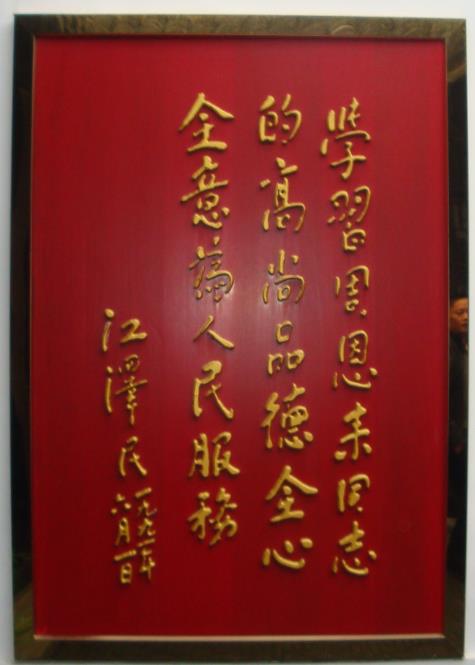 學習周恩来同志
的高尚品德全心
全意為人民服務
江澤民
一九九一年
六月一日